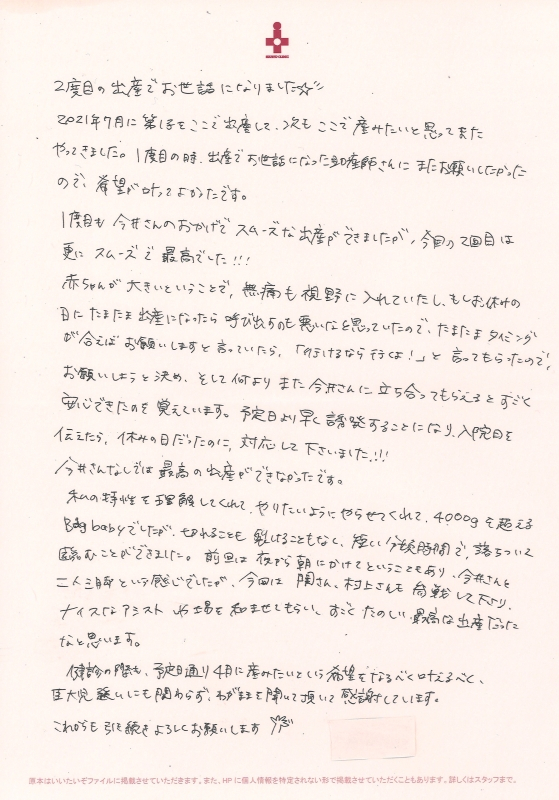 2度目の出産でお世話になりました☆彡
2021年7月に第1子をここで出産して、次もここで産みたいと思ってまた
やってきました。1度目の時、出産でお世話になった助産師さんにまたお願いしたかった
ので、希望が叶ってよかったです。
1度目も今井さんのおかげでスムーズな出産ができましたが、今回の2回目は
更にスムーズで最高でした!!!
赤ちゃんが大きいということで、無痛も視野に入れていたし、もしお休みの
日にたまたま出産になったら呼び出すのも悪いなと思っていたので、たまたまタイミング
が合えばお願いしますと言っていたら、「行けるなら行くよ!」と言ってもらったので、
お願いしようと決め、そして何よりまた今井さんに立ち合ってもらえるとすごく
安心できたのを覚えています。予定日より早く誘発することになり、入院日を
伝えたら、休みの日だったのに、対応して下さいました!!!
今井さんなしでは最高の出産ができなかったです。
私の特性を理解してくれて、やりたいようにやらせてくれて、4000gを超える
Big babyでしたが、切れることも裂けることもなく、短い分娩時間で、落ちついて
臨むことができました。前回は夜から朝にかけてということもあり、今井さんと
二人三脚という感じでしたが、今回は関さん、村上さんも参戦して下さり、
ナイスなアシストや場を和ませてもらい、すごくたのしい最高な出産だった
なと思います。
健診の際も、予定日通り4月に産みたいという希望をなるべく叶えるべく、
巨大児疑いにも関わらず、わがままを聞いて頂いて感謝しています。
これからも引き続きよろしくお願いします
原本はいいたいぞファイルに掲載させていただきます。また、HPに個人情報を特定されない形で掲載させていただくこともあります。詳しくはスタッフまで。